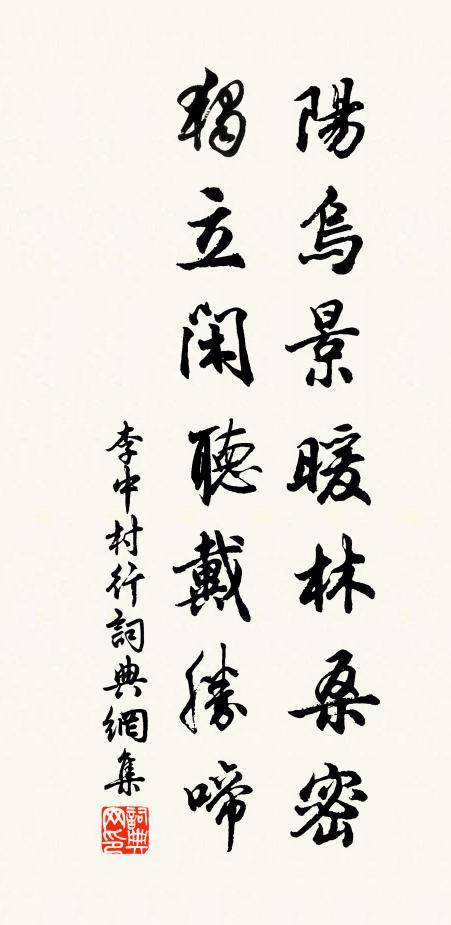 陽烏景暖林桑密
獨立閑聽戴勝啼
李中村行詞典網集
詞典網印